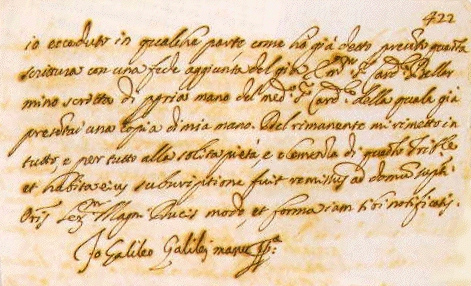 422
io ecceduto in qualche parte come ho già detto presento questa
scrittura con una fede aggiunta del già Em.mo S.r Card.le Bellar
mino scritta di propria mano del med.o S.r Card.le della quale già
presentai una copia di mia mano. Del rimanente mi rimetto in
tutto, e per tutto alla solita pietà e clemenza di questo Trib.le
et habita eius subscriptione fuit remissus ad domum supti
Oris Ser.mi Magni Ducis modo, et forma iam sibi notificatis.
Io Galileo Galilei manu pp.a